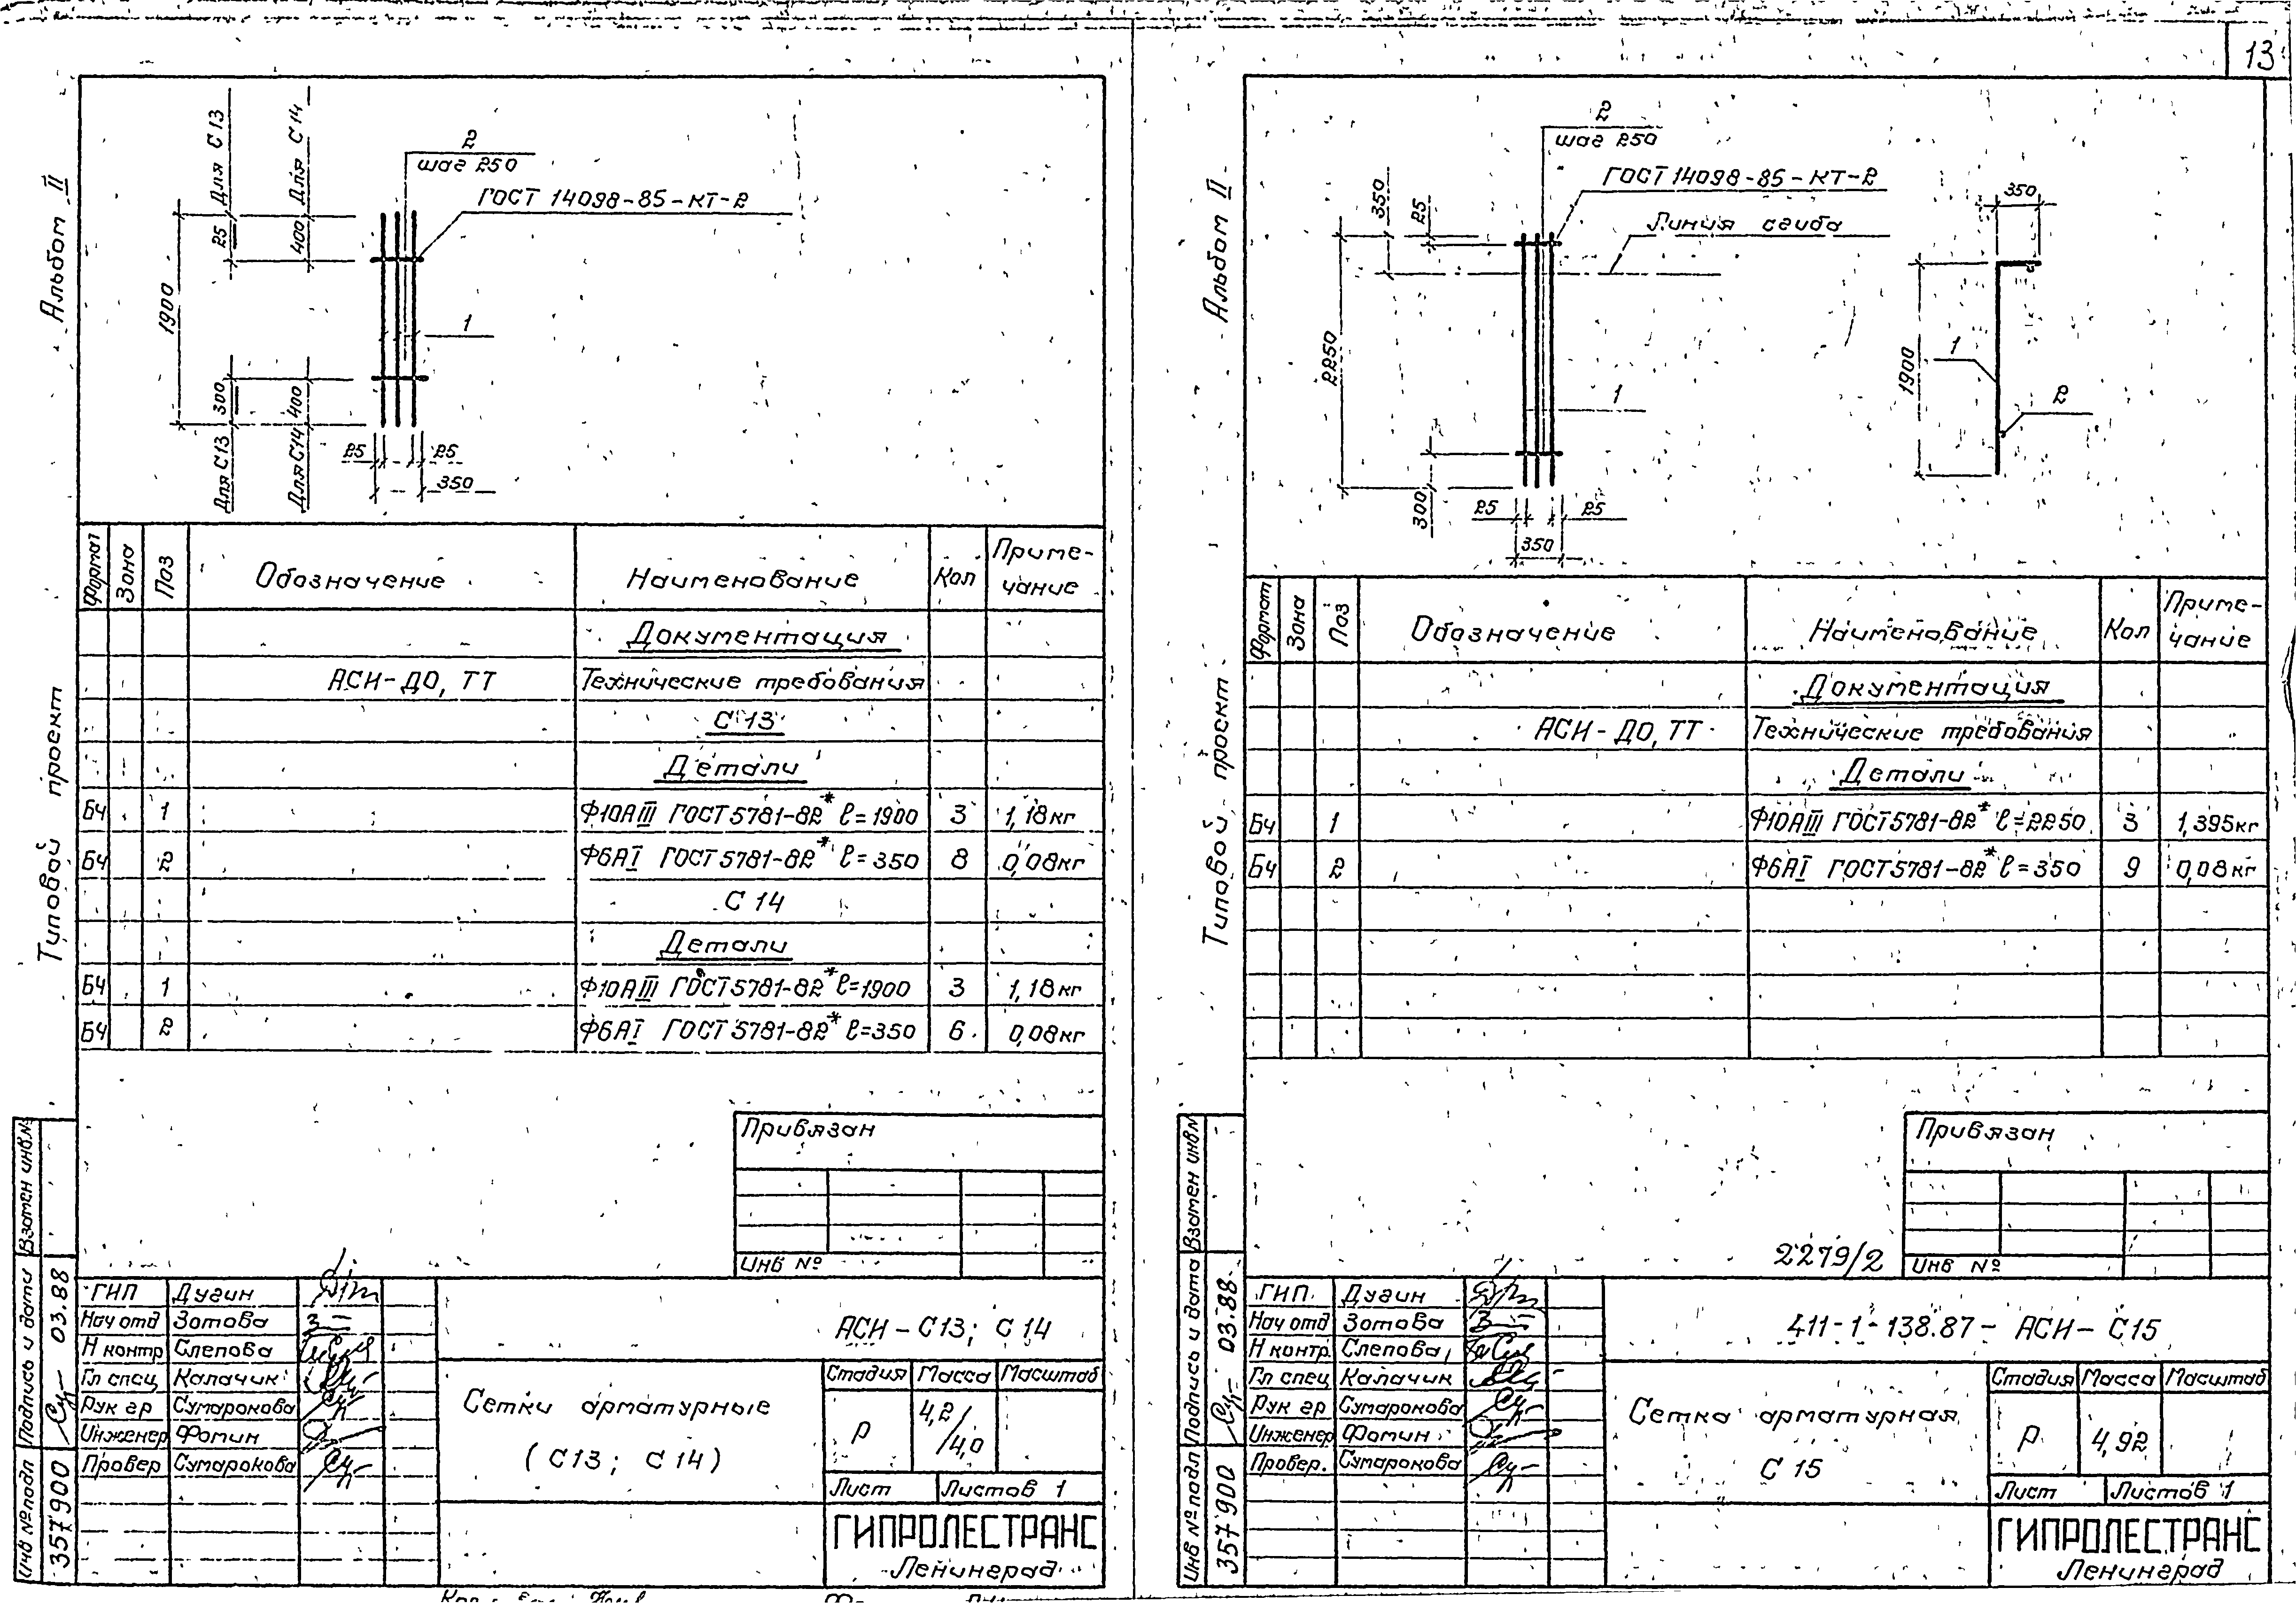 13
Альбом II
Типовой проект
Для С13
Для С14
25
400
1900
300
400
Для С13
Для С14
2
шаг 250
ГОСТ 14098-85-КТ-2
1
25 25
350
Формат Зона Поз Обозначение Наименование Кол Приме-
чание
Документация
АСИ-ДО, ТТ Технические требования
С 13
Детали
БЧ 1 Ф10АIII ГОСТ 5781-82* ℓ=1900 3 1,18кг
БЧ 2 Ф6АI ГОСТ 5781-82* ℓ=350 8 0,08кг
С 14
Детали
БЧ 1 Ф10АIII ГОСТ 5781-82* ℓ=1900 3 1,18кг
БЧ 2 Ф6АI ГОСТ 5781-82* ℓ=350 6 0,08кг
Привязан
Инв №
Взамен инв.№
Подпись и дата 03.88
Инв № подл 357900
ГИП Дугин
Нач отд Зотова
Н контр Слепова
Гл спец Калачик
Рук гр Сумарокова
Инженер Фомин
Провер Сумарокова
АСИ - С13; С 14
Сетки арматурные
(С13; С 14)
Стадия Масса Масштаб
Р 4,2/4,0
Лист Листов 1
ГИПРОЛЕСТРАНС
Ленинград
Альбом II
Типовой проект
2
шаг 250
ГОСТ 14098-85-КТ-2
Линия сгиба
350
25
2250
1
300
25 25
350
350
1900
1
2
Формат Зона Поз Обозначение Наименование Кол Приме-
чание
Документация
АСИ-ДО, ТТ Технические требования
Детали
БЧ 1 Ф10АIII ГОСТ 5781-82* ℓ=2250 3 1,395кг
БЧ 2 Ф6АI ГОСТ 5781-82* ℓ=350 9 0,08кг
Привязан
2279/2
Инв №
Взамен инв№
Подпись и дата 03.88
Инв № подл 357900
ГИП Дугин
Нач отд Зотова
Н контр. Слепова
Гл спец Калачик
Рук гр Сумарокова
Инженер Фомин
Провер. Сумарокова
411-1-138.87 - АСИ - С15
Сетка арматурная
С 15
Стадия Масса Масштаб
Р 4,92
Лист Листов 1
ГИПРОЛЕСТРАНС
Ленинград